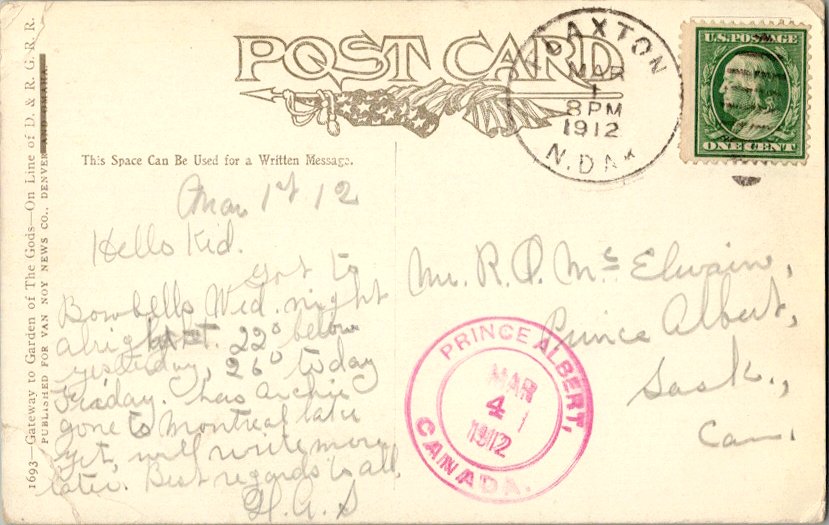 1693—Gateway to Garden of The Gods—On Line of D. & R. G. R. R.
PUBLISHED FOR VAN NOY NEWS CO., DENVER AND OMAHA
POST CARD
This Space Can Be Used for a Written Message.
MAR
1
8 PM
1912
N. DAK
U.S. POSTAGE
ONE CENT
Mar 1st 12
Hello Kid.
Got to
Bowbells Wed. night
alright. 22° below
yesterday, 26° today
Friday. Has Archie
gone to Montreal
yet, will write more
later. Best regards to all,
H.A.S
Mr. R. Mc Elwain,
Prince Albert,
Sask.,
Can.
PRINCE ALBERT,
MAR
4
1912
CANADA.